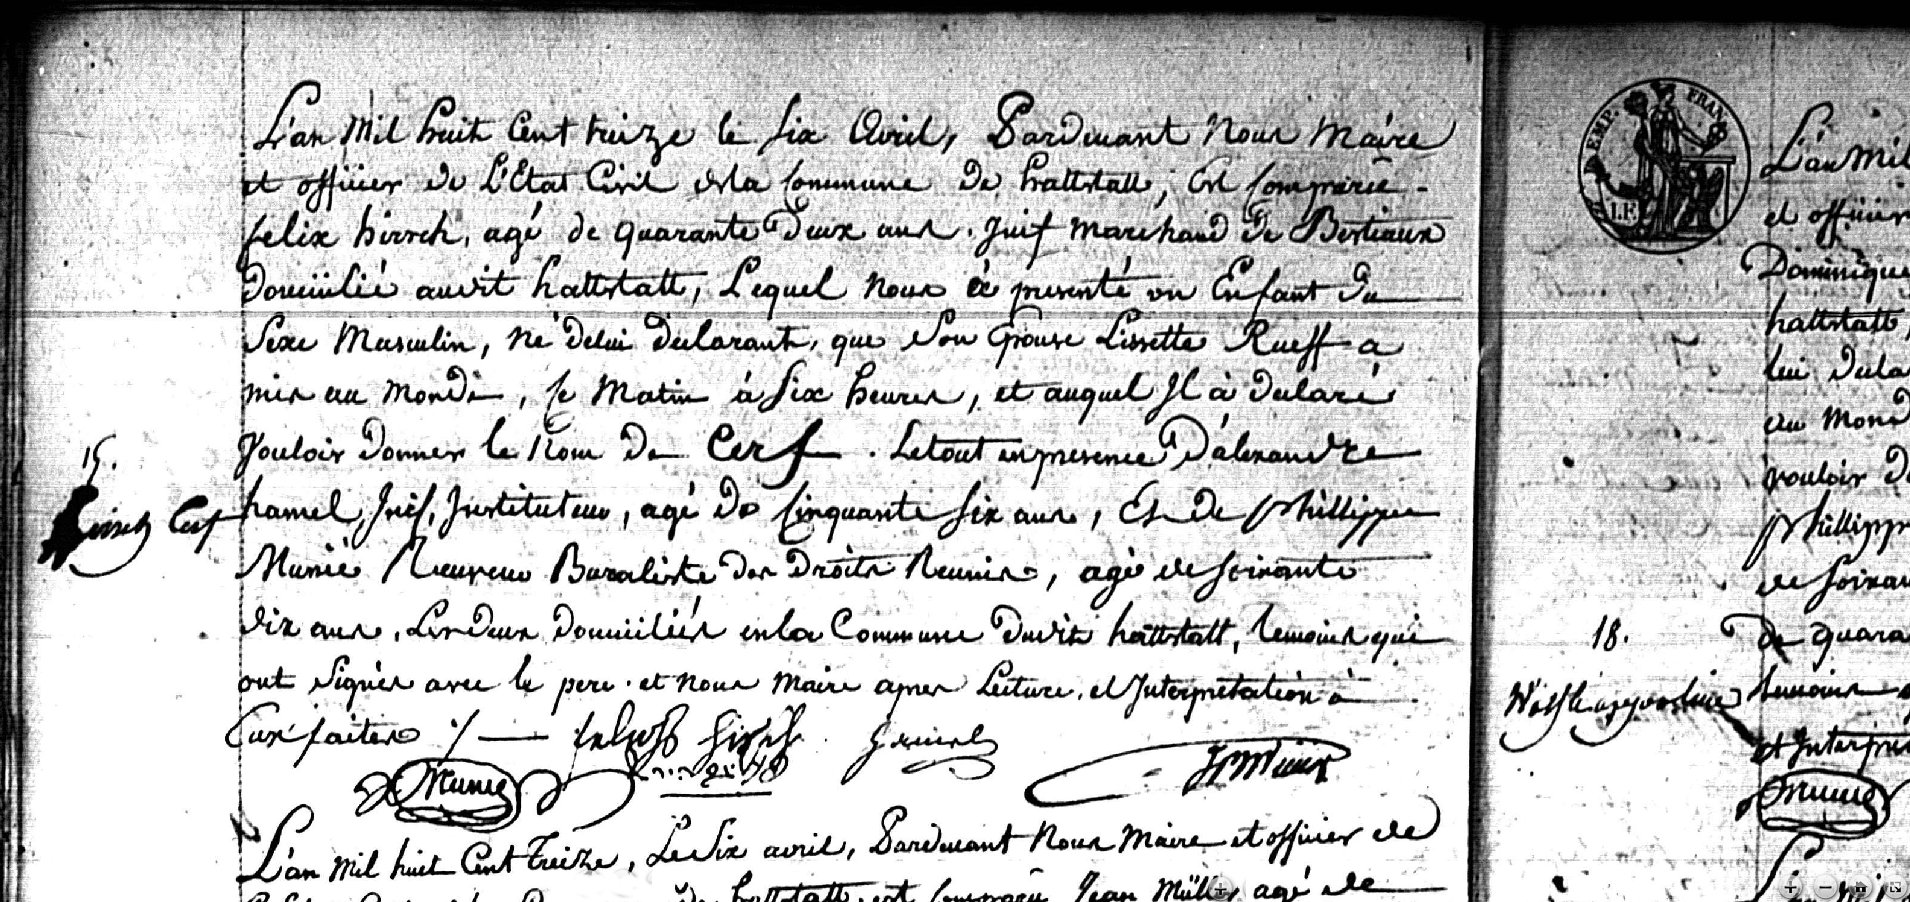 L'an Mil huit Cent treize le six Avril, Pardevant Nous Maire
et officier de L'Etat Civil de la Commune de hattstatt, Est Comparüe
felix hirsch, agé de quarante Deux ans. Juif marchand De Bestiaux
Domicilié audit hattstatt, Lequel Nous à presenté un Enfant du
Sexe Masculin, né de lui declarant, que Son Epouse Lissette Rueff a
mis au Monde, ce Matin à Six heures, et auquel Il à declaré
Vouloir Donner le Nom De Cerf. Le tout en presence D'alexandre
hamel, Juif, Instituteur, agé de Cinquante Six ans, Et De Phillippe
Munié Receveur Buraliste des Droits Reunis, agé de soixante
dix ans, Les deux domiciliés en la Commune dudit hattstatt, temoins qui
ont Signés avec le pere et nous maire apres Lecture, et Interpretation à
Eux faites
Munie
15.
hirsch Cerf
L'an mil huit Cent Treize, Le Six avril, Pardevant Nous Maire et officier de
de hattstatt, est Comparu Jean Müller, agé de
EMP. FRANÇ
L'an mil
et officier
Dominique
hattstatt,
lui decla
au Mond
vouloir D
Phillippe
de soixan
18.
de quara
temoins
et Interpre
Munie